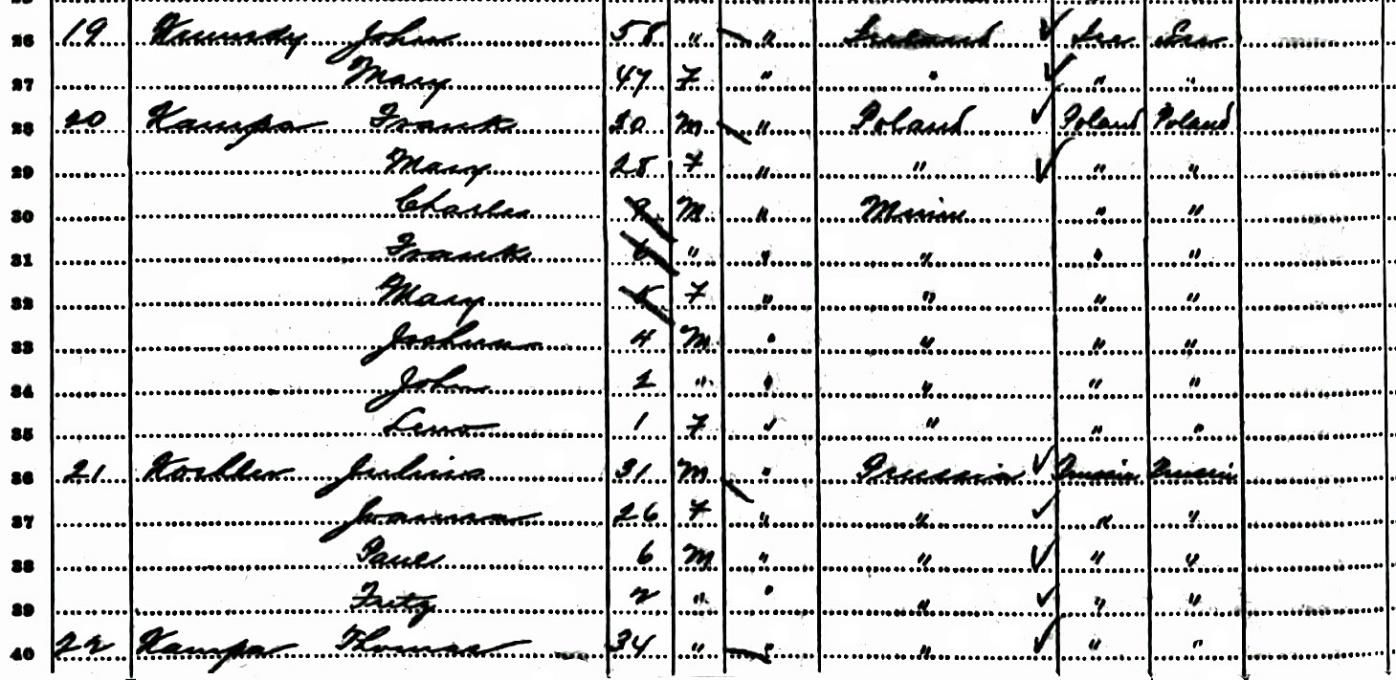 26 19 John 58 " " Ireland ✓ Ire Ire
27 Mary 47 F " " ✓ " "
28 20 Kampa Frank 30 M " Poland ✓ Poland Poland
29 Mary 28 F " " ✓ " "
30 Charles 9 M " Minn " "
31 Frank 6 " " " " "
32 Mary 5 F " " " "
33 4 M " " " "
34 John 2 " " " " "
35 Leno 1 F " " " "
36 21 Koehler Julius 31 M " Prussia ✓ Prussia Prussia
37 26 F " " ✓ " "
38 Paul 6 M " " ✓ " "
39 Fritz 2 " " " ✓ " "
40 22 Kampa Thomas 34 " " " ✓ " "